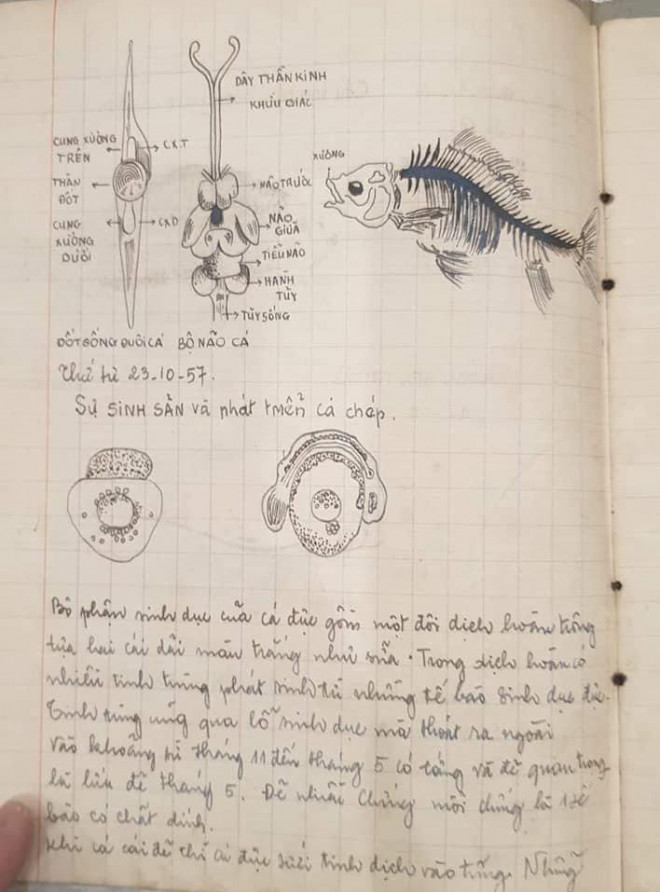 DÂY THẦN KINH
KHỨU GIÁC
CUNG XƯƠNG
TRÊN
C.X.T
THÂN
ĐỐT
CUNG
XƯƠNG
DƯỚI
CXD
NÃO TRƯỚC
NÃO
GIỮA
TIỂU NÃO
HÀNH
TỦY
TỦY SỐNG
XƯƠNG
ĐỐT SỐNG ĐUÔI CÁ BỘ NÃO CÁ
Thứ tư 23-10-57.
Sự SINH SẢN và phát triển cá chép.
Bộ phận sinh dục của cá đực gồm một đôi dịch hoàn trông
tựa hai cái dải màu trắng như sữa. Trong dịch hoàn có
nhiều tinh trùng phát sinh từ những tế bào sinh dục đực.
Tinh trùng qua lỗ sinh dục mà thoát ra ngoài
vào khoảng từ tháng 11 đến tháng 5 có và để quan trọng
là lứa đẻ tháng 5. là 1 tế
bào có chất dính.
Khi cá cái đẻ thì cá đực tưới tinh dịch vào trứng. Những